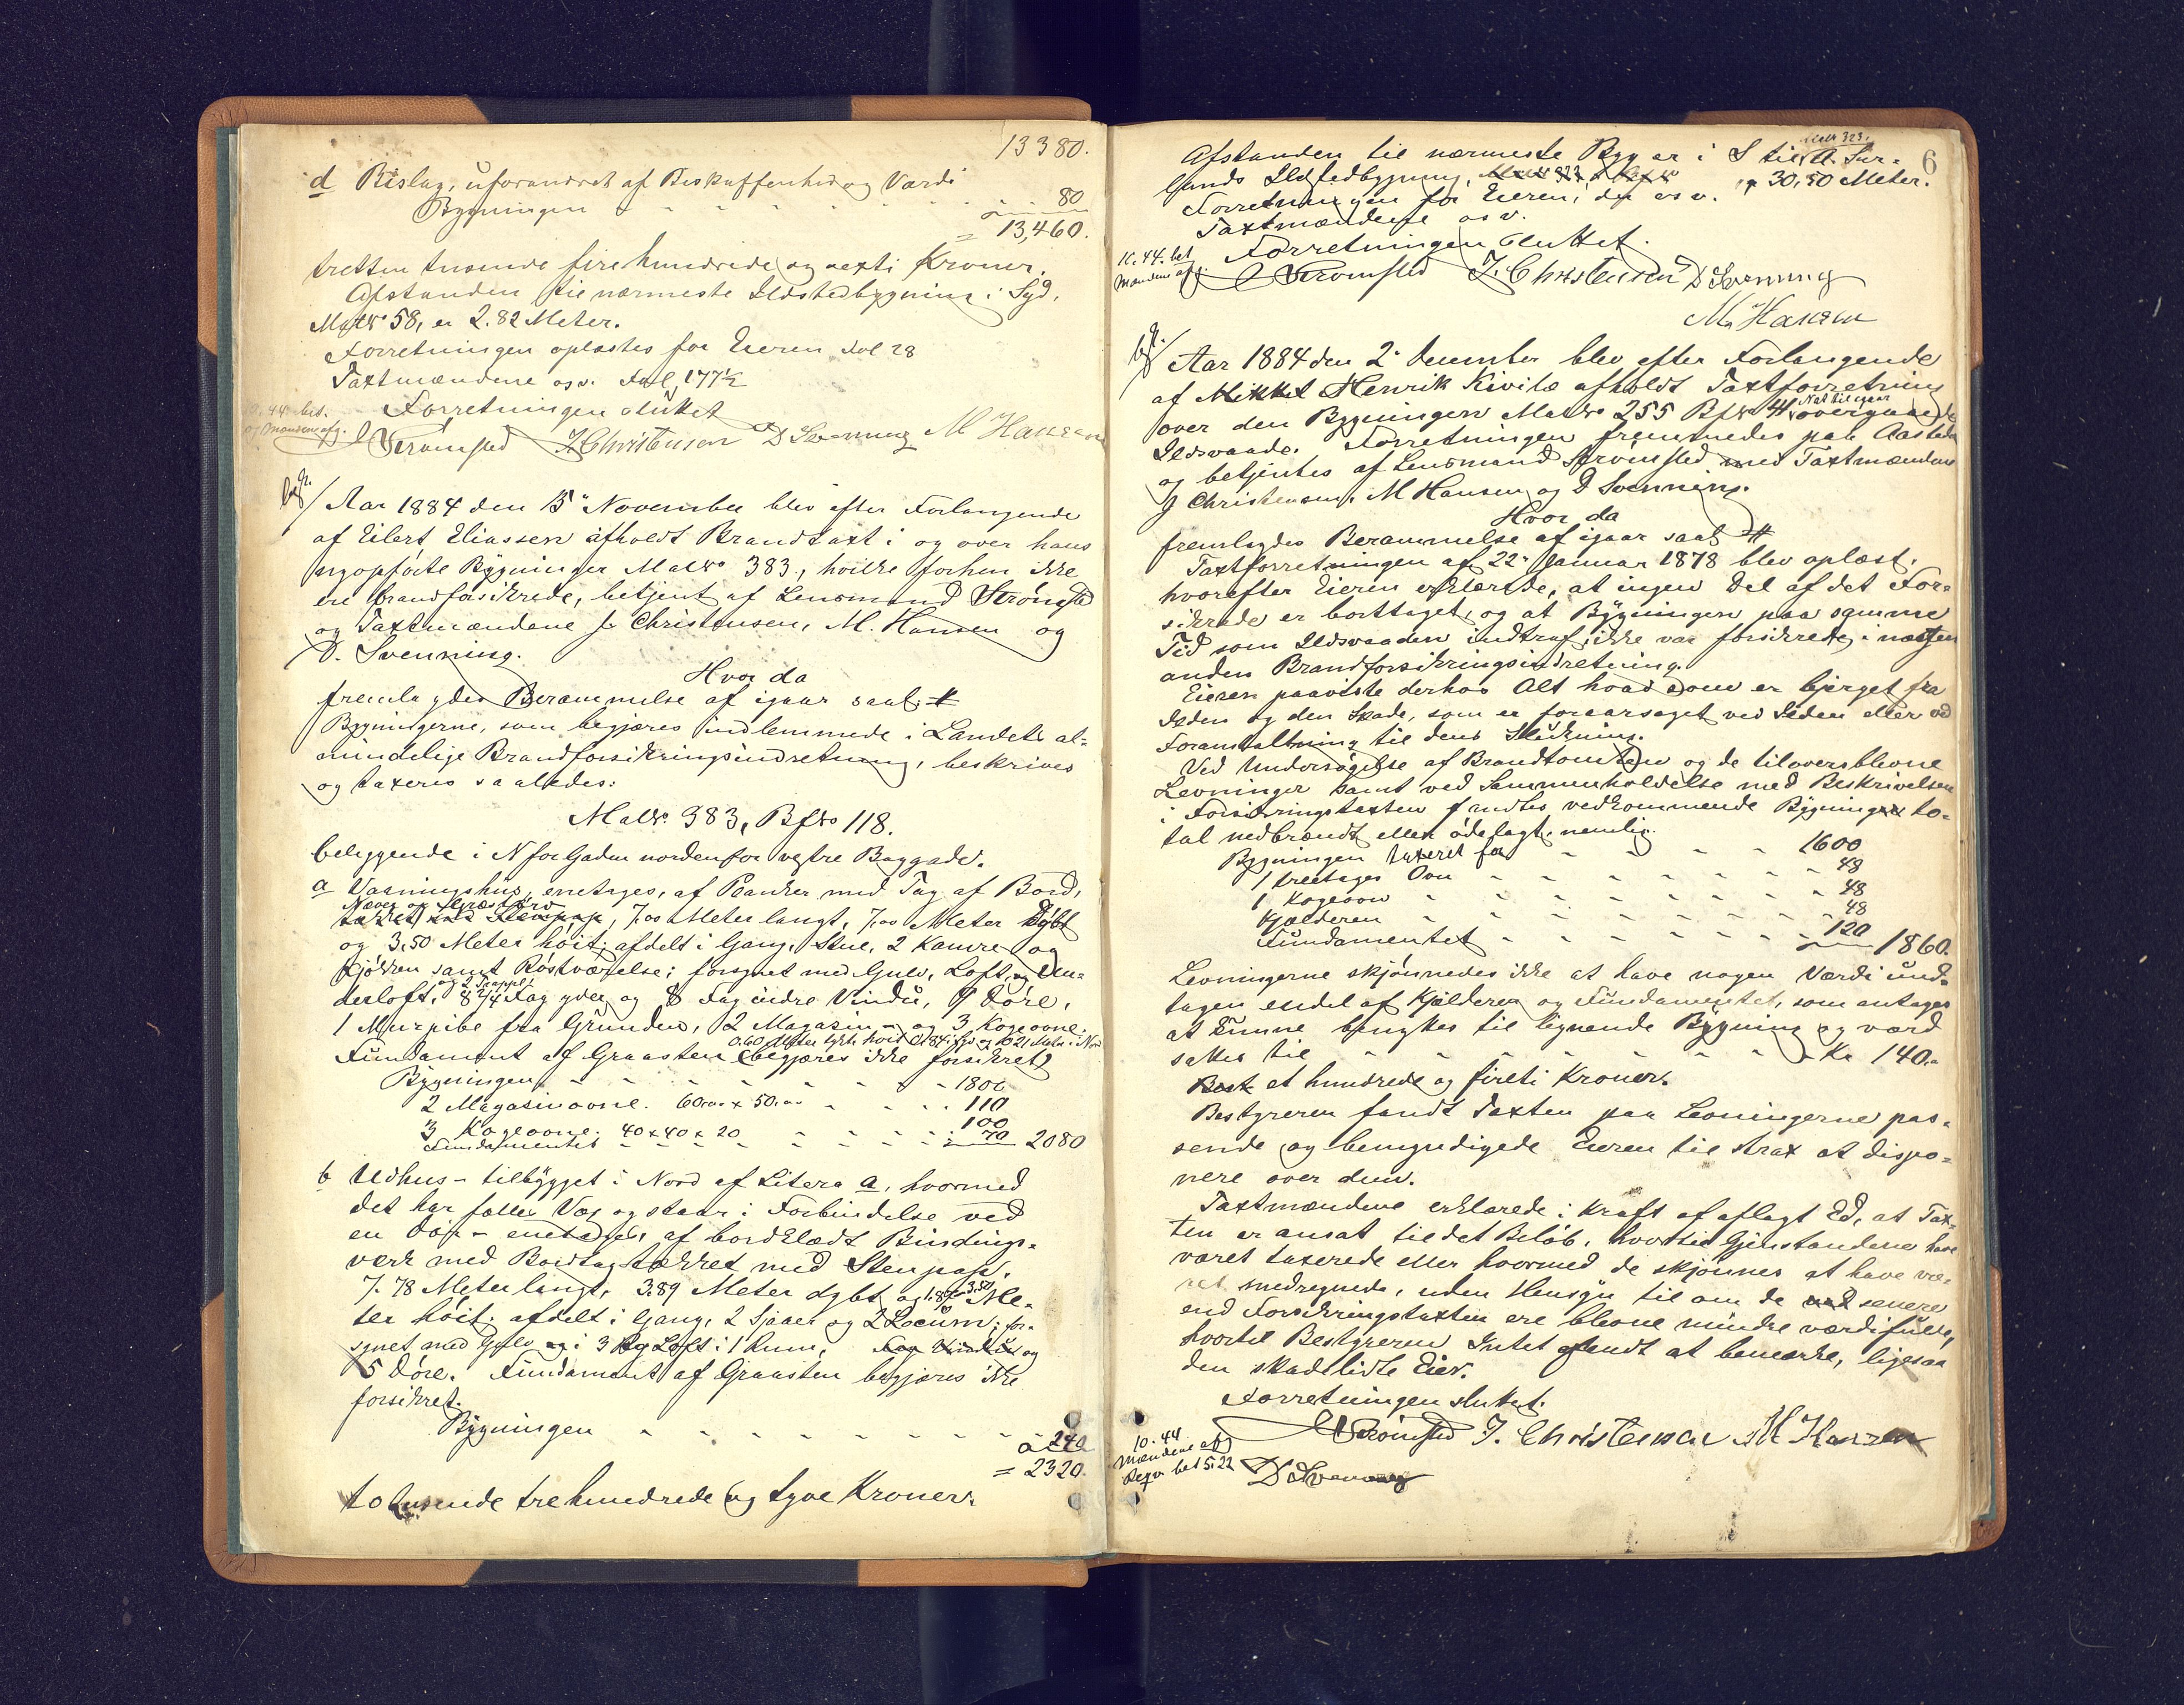 13380.
d Bislag, uforandret af Beskaffenhed og Værdi
Bygningen - - - - - - - 80
= 13,460.
tretten tusende fire hundrede og sexti Kroner.
Afstanden til nærmeste Ildstedbygning i Syd,
Matr 58, er 2.82 Meter.
Forretningen oplæstes for Eieren Fol 28
Taxtmændene osv. Fol. 177½
Forretningen sluttet
10.44 bet.
og Mændene afg.
Strømsted J Christensen D Svenning M Hansen
Aar 1884 den 15de November blev efter Forlangende
af Eilert Eliassen afholdt Brandtaxt i og over hans
nyopførte Bygninger Matr 383, hvilke forhen ikke
ere brandforsikrede, betjent af Lensmand Strømsted
og Taxtmændene J. Christensen, M. Hansen og
D. Svenning.
Hvor da
fremlagdes Berammelse af igaar saal.
Bygningerne, som begjæres indlemmede i Landets al=
mindelige Brandforsikringsindretning, beskrives
og taxeres saaledes:
Matr. 383, Bfr 118.
beliggende i N for Gaden nordenfor vestre Baggade.
a Vaaningshus, enetages, af Planker med Tag af Bord,
Næver og Græstørv
tækket med Stenpap, 7.00 Meter langt, 7.00 Meter dybt
og 3.50 Meter høit; afdelt i Gang, Stue, 2 Kamre og
Kjøkken samt Røstværelse; forsynet med Gulv, Loft, og Un=
og 2 Trapper
derloft, 8 2/4 Fag ydre og 8 Fag indre Vindu, 9 Døre,
1 Murpibe fra Grunden, 2 Magasin- og 3 Kogeovne.
0.60 Meter tykt, høit 0.84 i Syd og 1.21 Meter i Nord
Fundament af Graasten (begjæres ikke forsikret)
Bygningen - - - - - - 1800
2 Magasinovne. 60.00 x 50.00 - - - 110
3 Kogeovne. 40 x 40 x 20 - - - 100
Fundamentet - - - - - - 70 2080
b Udhus - tilbygget i Nord af Litera a, hvormed
det har fælles Væg og staar i Forbindelse ved
en Dør - enetages, af bordklædt Bindings=
verk med Bordtag tækket med Stenpap.
7.78 Meter langt, 3.89 Meter dybt og 1.88 - 3.50 Me=
ter høit; afdelt i Gang, 2 Sjaaer og 2 Locum; for=
synet med Gulv og i 3 Rg Loft i 1 Rum, Fag Vindue og
5 Døre. Fundament af Graasten begjæres ikke
forsikret.
Bygningen - - - - - - - 240
= 2320.
to tusende tre hundrede og tyve Kroner.
Matr 323,
6
Afstanden til nærmeste Byg er i S til A. Sur=
Gunds Ildstedbygning, 30,50 Meter.
Forretningen for Eieren, der osv.
Taxtmændene osv.
10.44 bet
Mændene afg.
Forretningen sluttet.
Strømsted J. Christensen D Svenning
M. Hansen
Aar 1884 den 2de December blev efter Forlangende
af Mikkel Henrik Kivilæ afholdt Taxtforretning
Nat til igaar
over den Bygningen Matr 255 Bfr 41 overgaaede
Ildsvaade. Forretningen fremmedes paa Aastedet
og betjentes af Lensmand Strømsted med Taxtmændene
J Christensen, M Hansen og D Svenning.
Hvor da
fremlagdes Berammelse af igaar saal
Taxtforretningen af 22de Januar 1878 blev oplæst,
hvorefter Eieren erklærede, at ingen Del af det For=
sikrede er borttaget, og at Bygningen paa samme
Tid som Ildsvaaden indtraf, ikke var forsikrede i nogen
anden Brandforsikringsindretning.
Eieren paaviste derhos Alt hvad som er bjerget fra
Ilden og den Skade, som er foraarsaget ved Ilden eller ved
Foranstaltning til dens Slukning.
Ved Undersøgelse af Brandtomten og de tiloversblevne
Levninger samt ved Sammenholdelse med Beskrivelsen
i Forsikringstaxten fandtes vedkommende Bygninger to=
tal nedbrændt eller ødelagt, nemlig.
Bygningen taxeret for - - - - 1600
1 treetages Ovn - - - - - - 48
1 Kogeovn - - - - - - - 48
Kjælderen - - - - - - - 48
Fundamentet - - - - - - 120 1860.
Levningerne skjønnedes ikke at have nogen Værdi und=
tagen endel af Kjælderen og Fundamentet, som antages
at kunne benyttes til lignende Bygning og værd
sattes til - - - - - - - Kr 140.-
Best et hundrede og firti Kroner.
Bestyreren fandt Taxten paa Levningerne pas=
sende og bemyndigede Eieren til strax at dispo=
nere over dem.
Taxtmændene erklærede i Kraft af aflagt Ed, at Tax=
ten er ansat til det Beløb, hvortil Gjenstandene have
været taxerede eller hvormed de skjønnes at have væ=
ret medregnede, uden Hensyn til om de ved senere
end Forsikringstaxten ere blevne mindre værdifulde,
hvortil Bestyreren Intet fandt at bemærke, ligesaa
den skadelidte Eier.
Forretningen sluttet.
10.44
Mændene afg
Rexp bet 5.22
Strømsted J. Christensen M Hansen
D Svenning